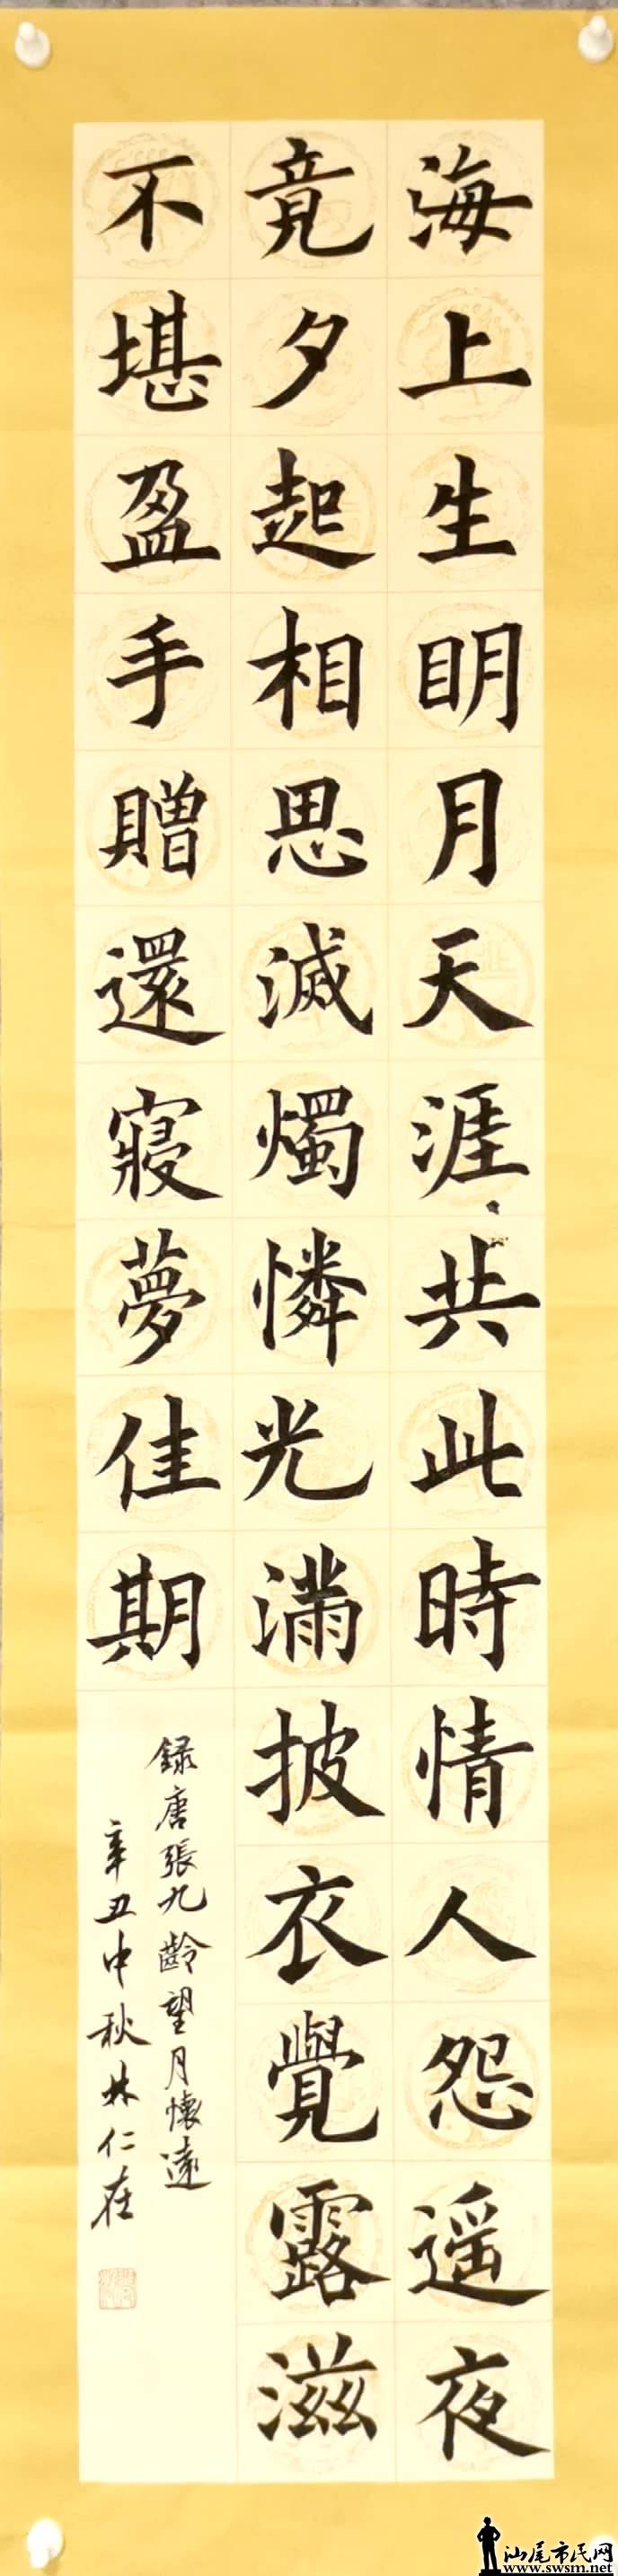 海上生明月天涯共此時情人怨遥夜
竟夕起相思滅燭憐光滿披衣覺露滋
不堪盈手贈還寢夢佳期
録唐張九齡望月懷遠
辛丑中秋林仁在
汕尾市民网
www.swsm.net